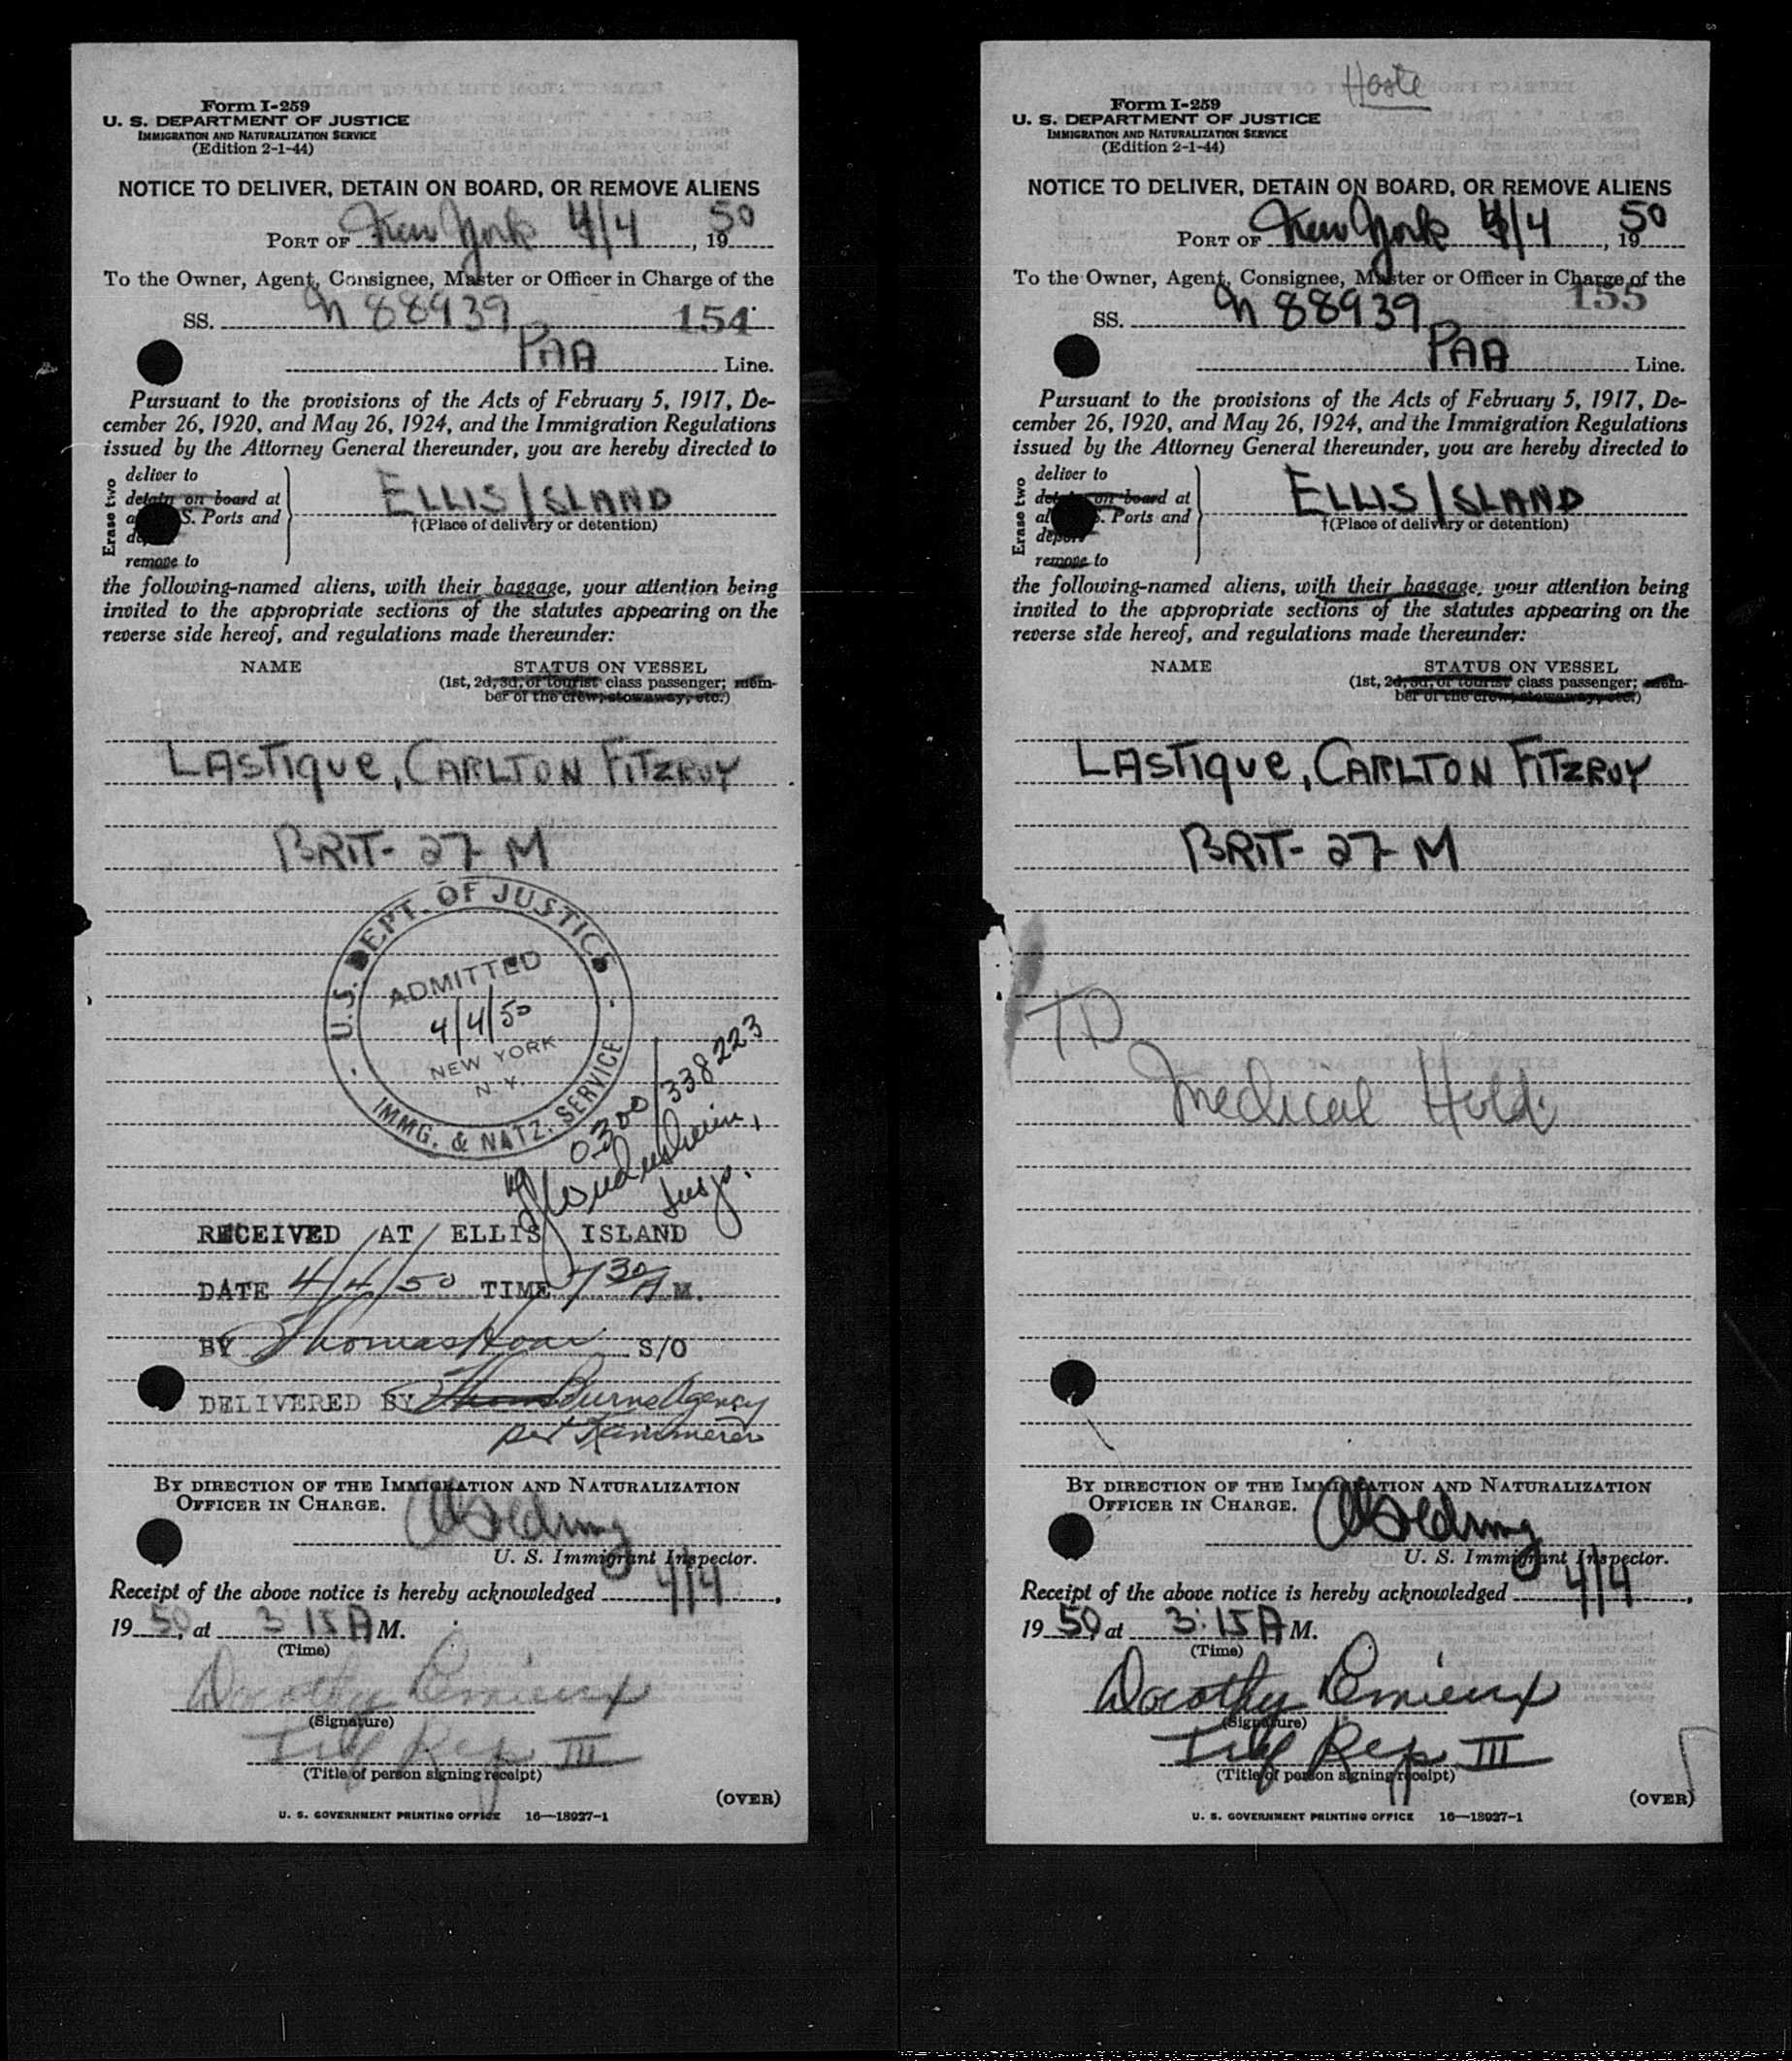 Form I-259
U. S. DEPARTMENT OF JUSTICE
IMMIGRATION AND NATURALIZATION SERVICE
(Edition 2-1-44)
NOTICE TO DELIVER, DETAIN ON BOARD, OR REMOVE ALIENS
PORT OF New York 4/4, 1950
To the Owner, Agent, Consignee, Master or Officer in Charge of the
SS. N 88939 154
PAA Line.
Pursuant to the provisions of the Acts of February 5, 1917, De-
cember 26, 1920, and May 26, 1924, and the Immigration Regulations
issued by the Attorney General thereunder, you are hereby directed to
Erase two
deliver to
detain on board at
S. Ports and
remove to
ELLIS ISLAND
†(Place of delivery or detention)
the following-named aliens, with their baggage, your attention being
invited to the appropriate sections of the statutes appearing on the
reverse side hereof, and regulations made thereunder:
NAME STATUS ON VESSEL
(1st, 2d, 3d, or tourist class passenger; mem-
ber of the crew, stowaway, etc.)
LASTIQUE, CARLTON FITZROY
BRIT- 27 M
U.S. DEPT. OF JUSTICE
ADMITTED
4/4/50
NEW YORK
N. Y.
IMMG. & NATZ. SERVICE
0300/338223
Insp.
RECEIVED AT ELLIS ISLAND
DATE 4/4/50 TIME 7 30 A M.
BY Thomas Hoar S/O
DELIVERED BY Burns Agency
per Kammerer
BY DIRECTION OF THE IMMIGRATION AND NATURALIZATION
OFFICER IN CHARGE.
U. S. Immigrant Inspector.
Receipt of the above notice is hereby acknowledged 4/4,
1950, at 3:15 A M.
(Time)
Dorothy
(Signature)
Rep III
(Title of person signing receipt)
(OVER)
U. S. GOVERNMENT PRINTING OFFICE 16—18927-1
Form I-259
U. S. DEPARTMENT OF JUSTICE
IMMIGRATION AND NATURALIZATION SERVICE
(Edition 2-1-44)
NOTICE TO DELIVER, DETAIN ON BOARD, OR REMOVE ALIENS
PORT OF New York 4/4, 1950
To the Owner, Agent, Consignee, Master or Officer in Charge of the
155
SS. N 88939
PAA Line.
Pursuant to the provisions of the Acts of February 5, 1917, De-
cember 26, 1920, and May 26, 1924, and the Immigration Regulations
issued by the Attorney General thereunder, you are hereby directed to
Erase two
deliver to
on board at
Ports and
remove to
ELLIS ISLAND
†(Place of delivery or detention)
the following-named aliens, with their baggage, your attention being
invited to the appropriate sections of the statutes appearing on the
reverse side hereof, and regulations made thereunder:
NAME STATUS ON VESSEL
(1st, 2d, 3d, or tourist class passenger; mem-
ber of the crew, stowaway, etc.)
LASTIQUE, CARLTON FITZROY
BRIT- 27 M
TD
Medical Hold
BY DIRECTION OF THE IMMIGRATION AND NATURALIZATION
OFFICER IN CHARGE.
U. S. Immigrant Inspector.
Receipt of the above notice is hereby acknowledged 4/4,
1950, at 3:15 A M.
(Time)
Dorothy
(Signature)
Rep III
(Title of person signing receipt)
(OVER)
U. S. GOVERNMENT PRINTING OFFICE 16—18927-1